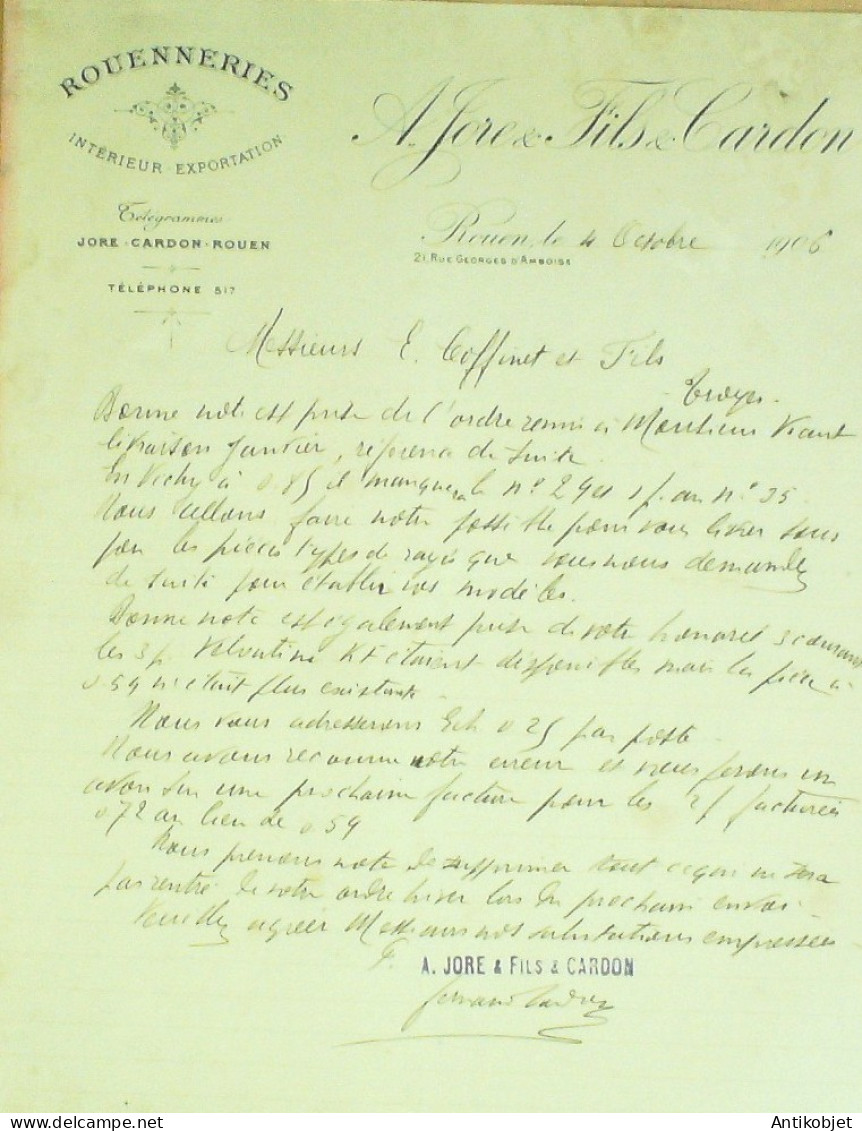 ROUENNERIES
INTÉRIEUR · EXPORTATION
A. Jore & Fils & Cardon
Télégrammes
JORE · CARDON · ROUEN
TÉLÉPHONE 517
Rouen, le 4 Octobre 1906
21, RUE GEORGES D'AMBOISE
Messieurs E. Coffinet et Fils
Troyes.
Bonne note est prise de l'ordre remis à Monsieur
livraison Janvier, de suite
En Vichy à 0.85 il manquera le nº 29 et 1 p. au nº 35.
Nous allons faire notre possible pour vous livrer sous
peu les pièces types de rayés que vous nous demandez
de suite pour établir vos modèles.
Bonne note est également prise de votre honorée 3 courant
les 3 p. Veloutine étaient disponibles mais la pièce à
0.59 n'était plus existante.
Nous vous adresserons Ech. 0 25 par poste.
Nous avons reconnu notre erreur et vous ferons un
avoir sur une prochaine facture pour les 2 p facturées
0.72 au lieu de 0.59
Nous prenons note de supprimer tout ce qui ne sera
pas rentré de votre ordre hiver lors du prochain envoi.
Veuillez agréer Messieurs nos salutations empressées
P. A. JORE & FILS & CARDON
© Delcampe.net
Antikobjet